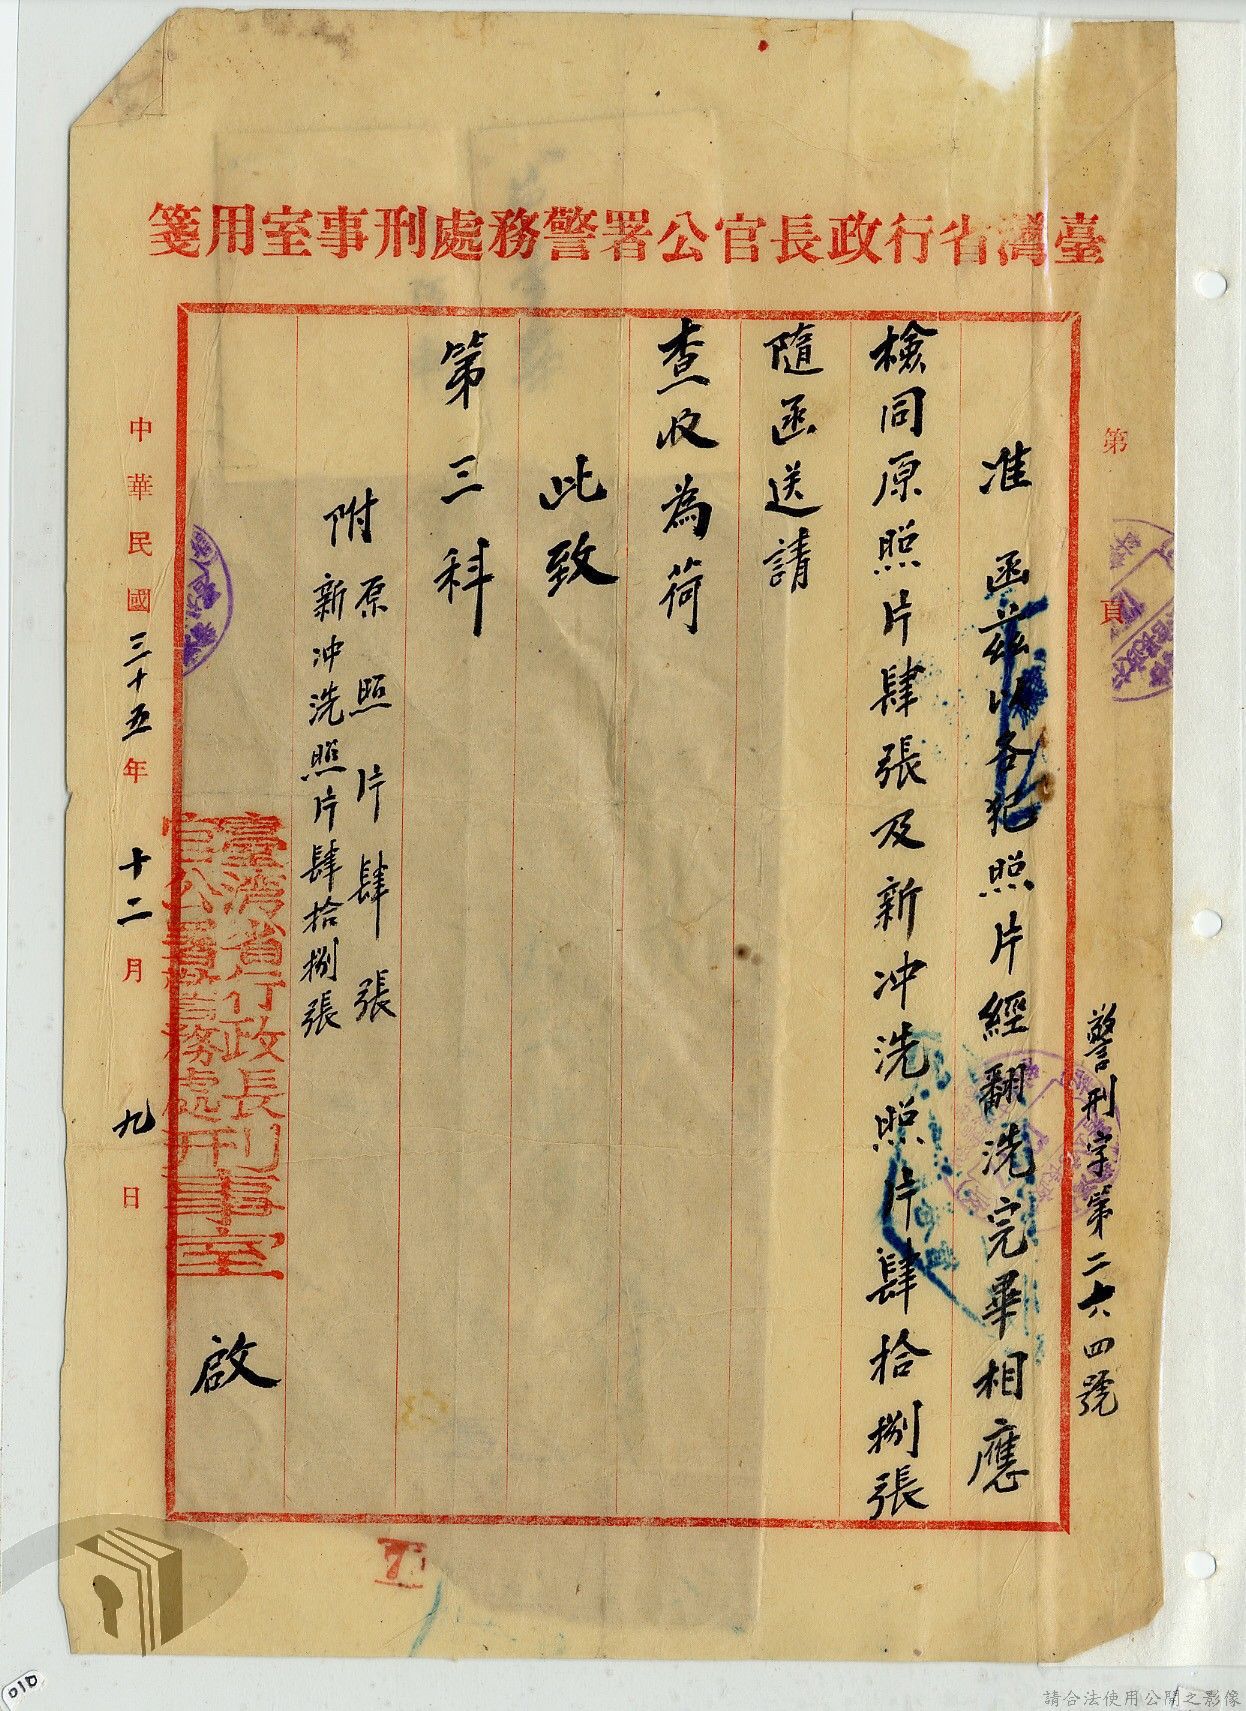 臺灣省行政長官公署警務處刑事室用箋
第 頁
警刑字第二六四號
准 函茲以各犯照片經翻洗完畢相應
檢同原照片肆張及新冲洗照片肆拾捌張
隨函送請
查收為荷
此致
第三科
附 原照片肆張
新冲洗照片肆拾捌張
臺灣省行政長
官公署警務處刑事室
啟
中華民國三十五年十二月九日
7
010
請合法使用公開之影像